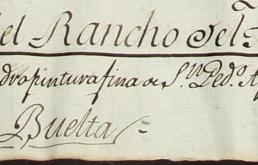 el Rancho del
dro pintura fina de Sn. Pedo. Ap
Buelta